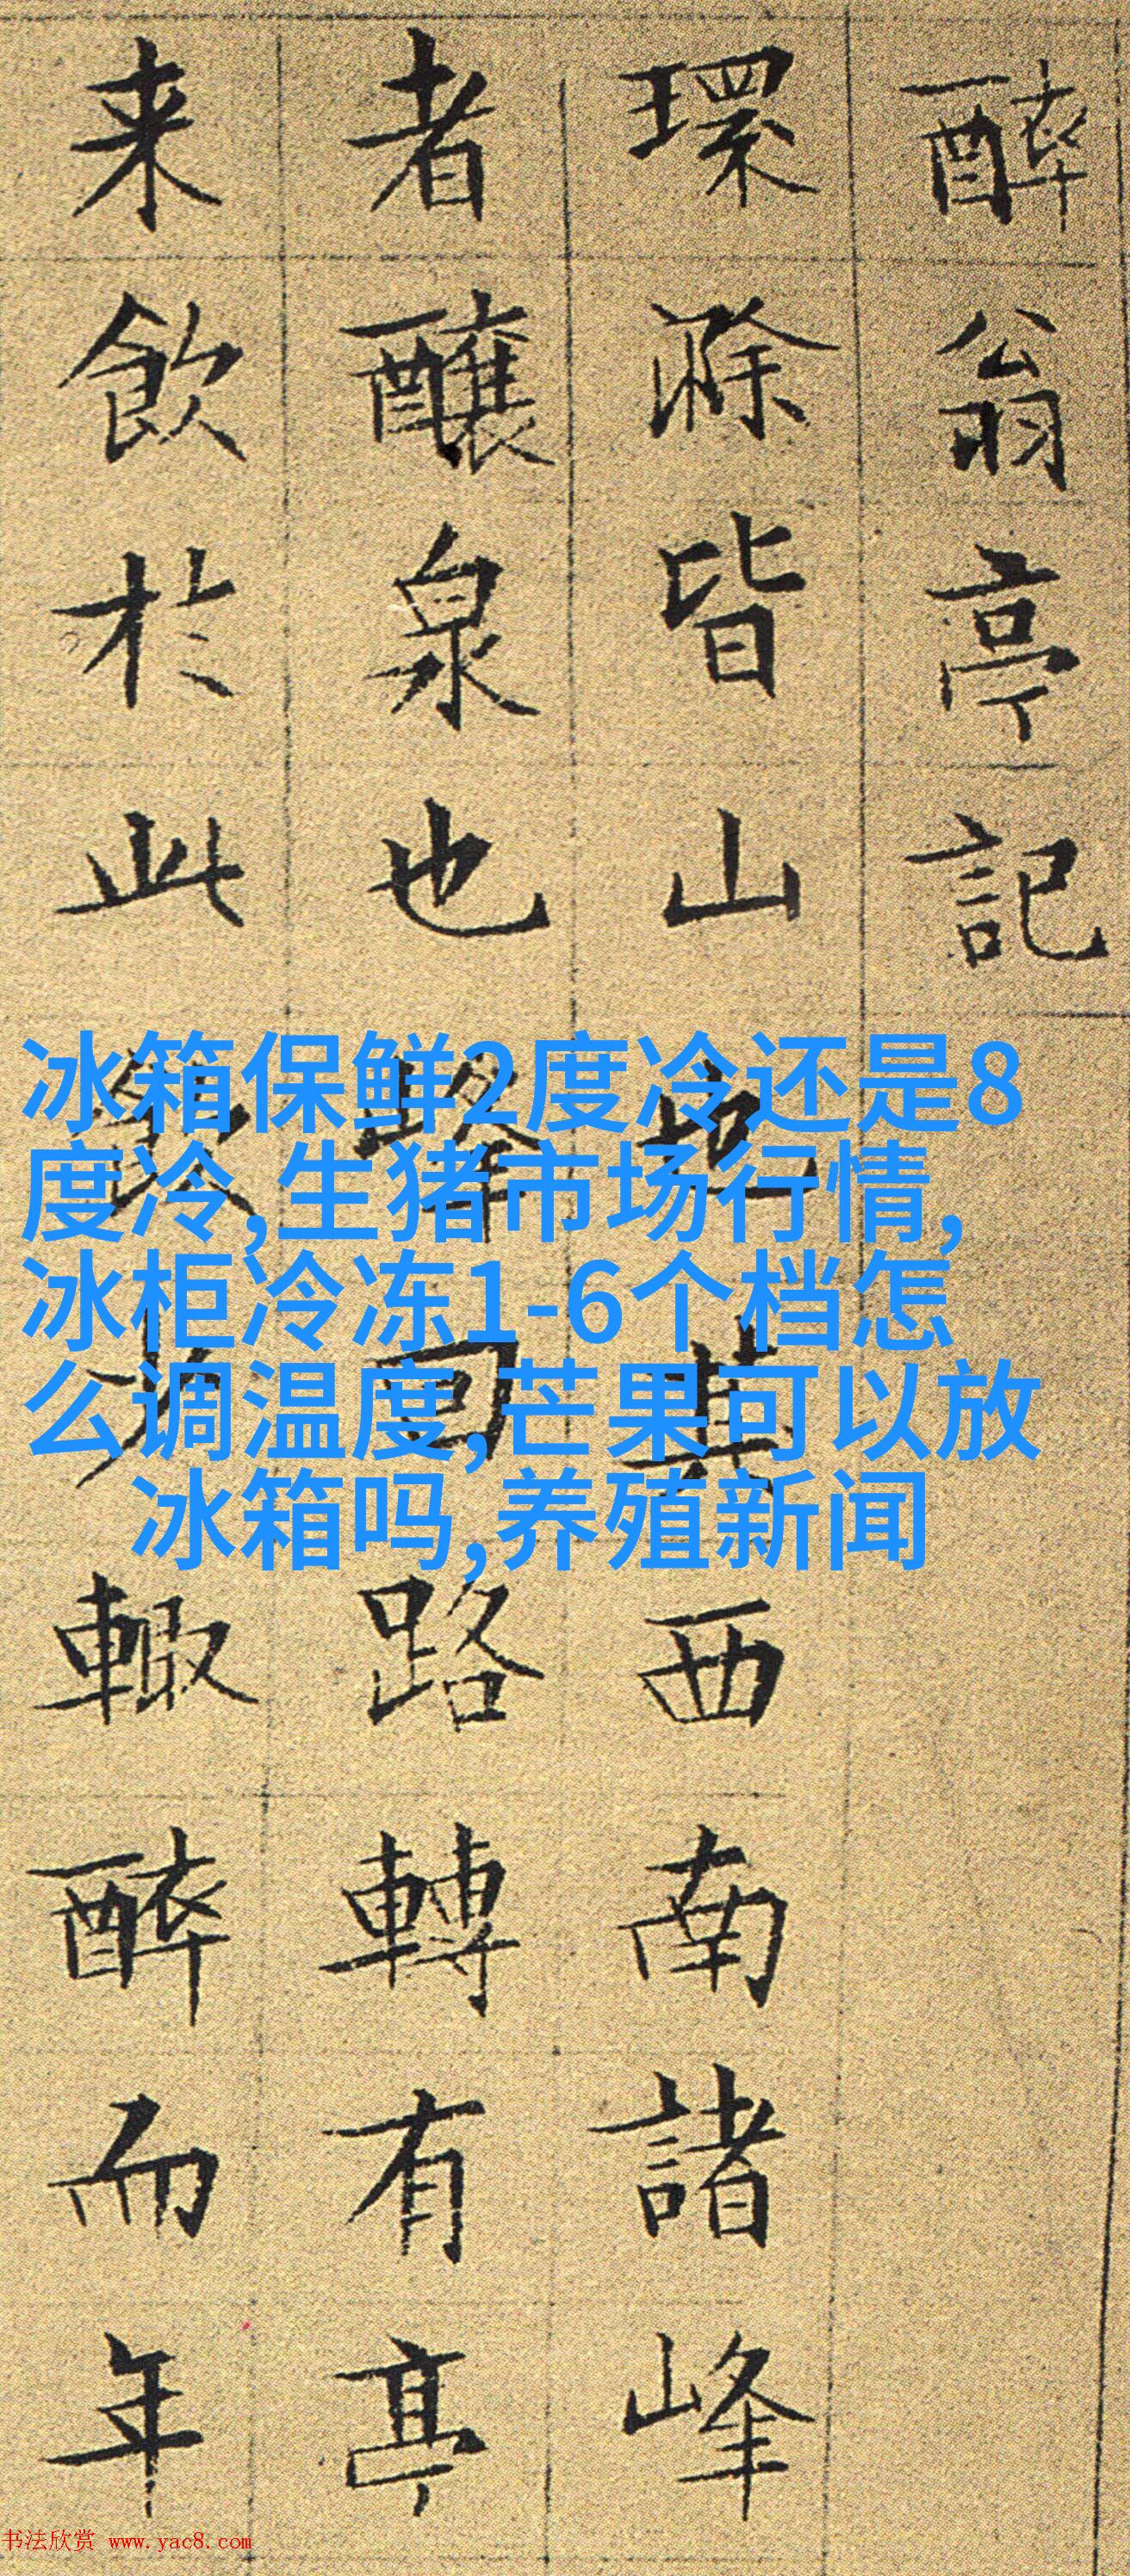 醉翁亭記
環滁皆山也其西南諸峰
者釀泉也峰回路轉有亭
来飲於此飲少輒醉而年
冰箱保鲜2度冷还是8
度冷,生猪市场行情,
冰柜冷冻1-6个档怎
么调温度,芒果可以放
冰箱吗,养殖新闻
书法欣赏 www.yac8.com